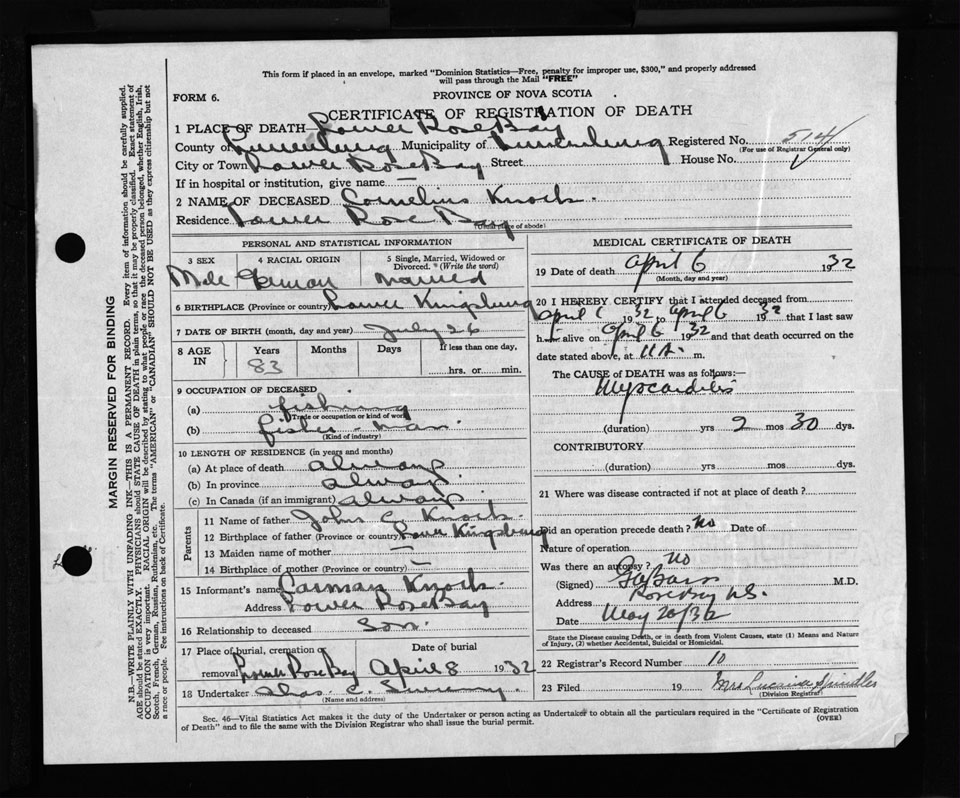 This form if placed in an envelope, marked "Dominion Statistics—Free, penalty for improper use, $300," and properly addressed
will pass through the Mail "FREE"
FORM 6.
PROVINCE OF NOVA SCOTIA
CERTIFICATE OF REGISTRATION OF DEATH
1 PLACE OF DEATH Lower Rose Bay
County of Lunenburg Municipality of Lunenburg Registered No. 514
(For use of Registrar General only)
City or Town Lower Rose Bay Street House No.
If in hospital or institution, give name —
2 NAME OF DECEASED Cornelius Knock.
Residence Lower Rose Bay
(Usual place of abode)
PERSONAL AND STATISTICAL INFORMATION
3 SEX 4 RACIAL ORIGIN 5 Single, Married, Widowed or Divorced. * (Write the word)
Male German Married
6 BIRTHPLACE (Province or country) Lower Kingsburg
7 DATE OF BIRTH (month, day and year) July 26
8 AGE IN Years Months Days If less than one day,
83 hrs. or min.
9 OCCUPATION OF DECEASED
(a) fishing
(Trade or occupation or kind of work)
(b) fisher-man.
(Kind of industry)
10 LENGTH OF RESIDENCE (in years and months)
(a) At place of death always
(b) In province always
(c) In Canada (if an immigrant) always
Parents
11 Name of father John C Knock.
12 Birthplace of father (Province or country) Lower Kingsburg
13 Maiden name of mother —
14 Birthplace of mother (Province or country) —
15 Informant's name Carman Knock.
Address Lower Rose Bay
16 Relationship to deceased Son.
17 Place of burial, cremation or removal Date of burial
Lower Rose Bay April 8 1932
18 Undertaker Chas. C.
(Name and address)
MEDICAL CERTIFICATE OF DEATH
19 Date of death April 6 1932
(Month, day and year)
20 I HEREBY CERTIFY that I attended deceased from
April 6 1932 to April 6 1932 that I last saw
h alive on April 6 1932 and that death occurred on the
date stated above, at 11 A. m.
The CAUSE of DEATH was as follows:—
Myocarditis
(duration) yrs 2 mos 30 dys.
CONTRIBUTORY
(duration) yrs mos dys.
21 Where was disease contracted if not at place of death?
Did an operation precede death? No Date of
Nature of operation
Was there an autopsy? No
(Signed) M.D.
Address Rose Bay N.S.
Date May 20/32
State the Disease causing Death, or in death from Violent Causes, state (1) Means and Nature
of Injury, (2) whether Accidental, Suicidal or Homicidal.
22 Registrar's Record Number 10
23 Filed 19 Mrs Lucina Spindler
(Division Registrar)
Sec. 46—Vital Statistics Act makes it the duty of the Undertaker or person acting as Undertaker to obtain all the particulars required in the "Certificate of Registration
of Death" and to file the same with the Division Registrar who shall issue the burial permit. (OVER)
MARGIN RESERVED FOR BINDING
N.B.—WRITE PLAINLY WITH UNFADING INK—THIS IS A PERMANENT RECORD. Every item of information should be carefully supplied.
AGE should be stated EXACTLY. PHYSICIANS should STATE CAUSE OF DEATH in plain terms, so that it may be properly classified. Exact statement of
OCCUPATION is very important. RACIAL ORIGIN will be described by stating to what people or race the deceased person belonged, whether English, Irish,
Scotch, French, German, Russian, Ruthenian, etc. The terms "AMERICAN" or "CANADIAN" SHOULD NOT BE USED as they express citizenship but not
a race or people. See instructions on back of Certificate.